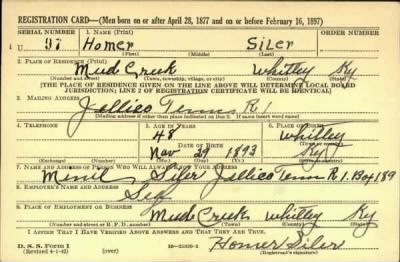 REGISTRATION CARD—(Men born on or after April 28, 1877 and on or before February 16, 1897)
SERIAL NUMBER 1. NAME (Print) ORDER NUMBER
U 97 Homer Siler
(First) (Middle) (Last)
2. PLACE OF RESIDENCE (Print)
Mud Creek Whitley Ky
(Number and street) (Town, township, village, or city) (County) (State)
[THE PLACE OF RESIDENCE GIVEN ON THE LINE ABOVE WILL DETERMINE LOCAL BOARD
JURISDICTION; LINE 2 OF REGISTRATION CERTIFICATE WILL BE IDENTICAL]
3. MAILING ADDRESS
Jellico Tenn R 1
[Mailing address if other than place indicated on line 2. If same insert word same]
4. TELEPHONE 5. AGE IN YEARS 6. PLACE OF BIRTH
48 Whitley
DATE OF BIRTH (Town or county)
Nov 29 1893 Ky
(Exchange) (Number) (Mo.) (Day) (Yr.) (State or country)
7. NAME AND ADDRESS OF PERSON WHO WILL ALWAYS KNOW YOUR ADDRESS
Siler Jellico Tenn R 1. Box 189
8. EMPLOYER'S NAME AND ADDRESS
Self
9. PLACE OF EMPLOYMENT OR BUSINESS
Mud Creek Whitley Ky
(Number and street or R. F. D. number) (Town) (County) (State)
I AFFIRM THAT I HAVE VERIFIED ABOVE ANSWERS AND THAT THEY ARE TRUE.
D. S. S. Form 1
(Revised 4-1-42) (over) Homer Siler
(Registrant's signature)